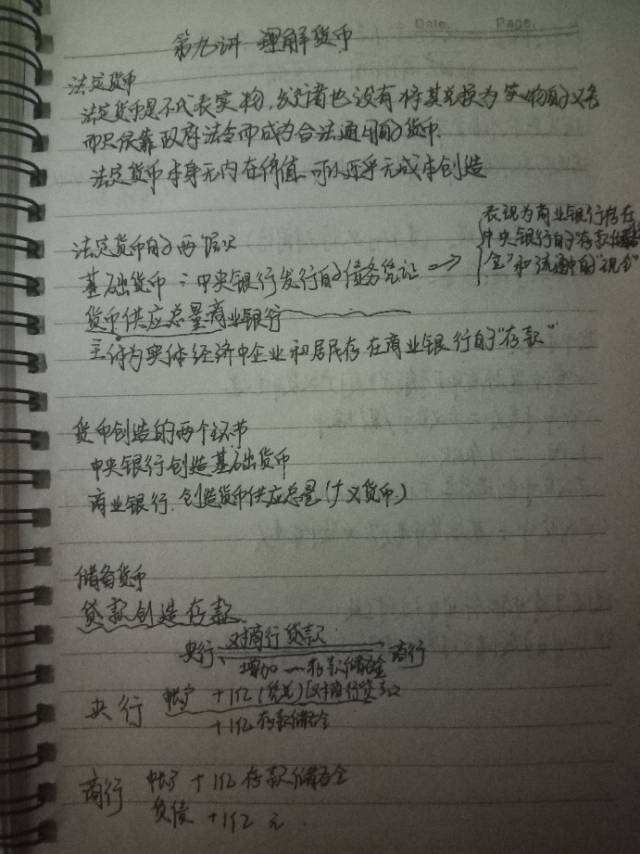 Date. Page.
第九讲 理解货币
法定货币
法定货币是不代表实物,发行者也没有将其兑换为实物的义务
而只依靠政府法令而成为合法通用的货币.
法定货币本身无内在价值.可以近乎无成本创造
法定货币的两层次
基础货币:中央银行发行的债务凭证 =>
表现为商业银行存在
中央银行的"存款储备
金"和流通中的"现金"
货币供应总量商业银行
主体为实体经济中企业和居民存在商业银行的"存款"
货币创造的两个环节
中央银行创造基础货币
商业银行.创造货币供应总量(广义货币)
储备货币
贷款创造存款.
央行 对商行贷款 商行
增加 存款储备金
央行 帐户 +1亿 对商行贷款
+1亿存款储备金
商行 帐户 +1亿存款储备金
负债 +1亿元.